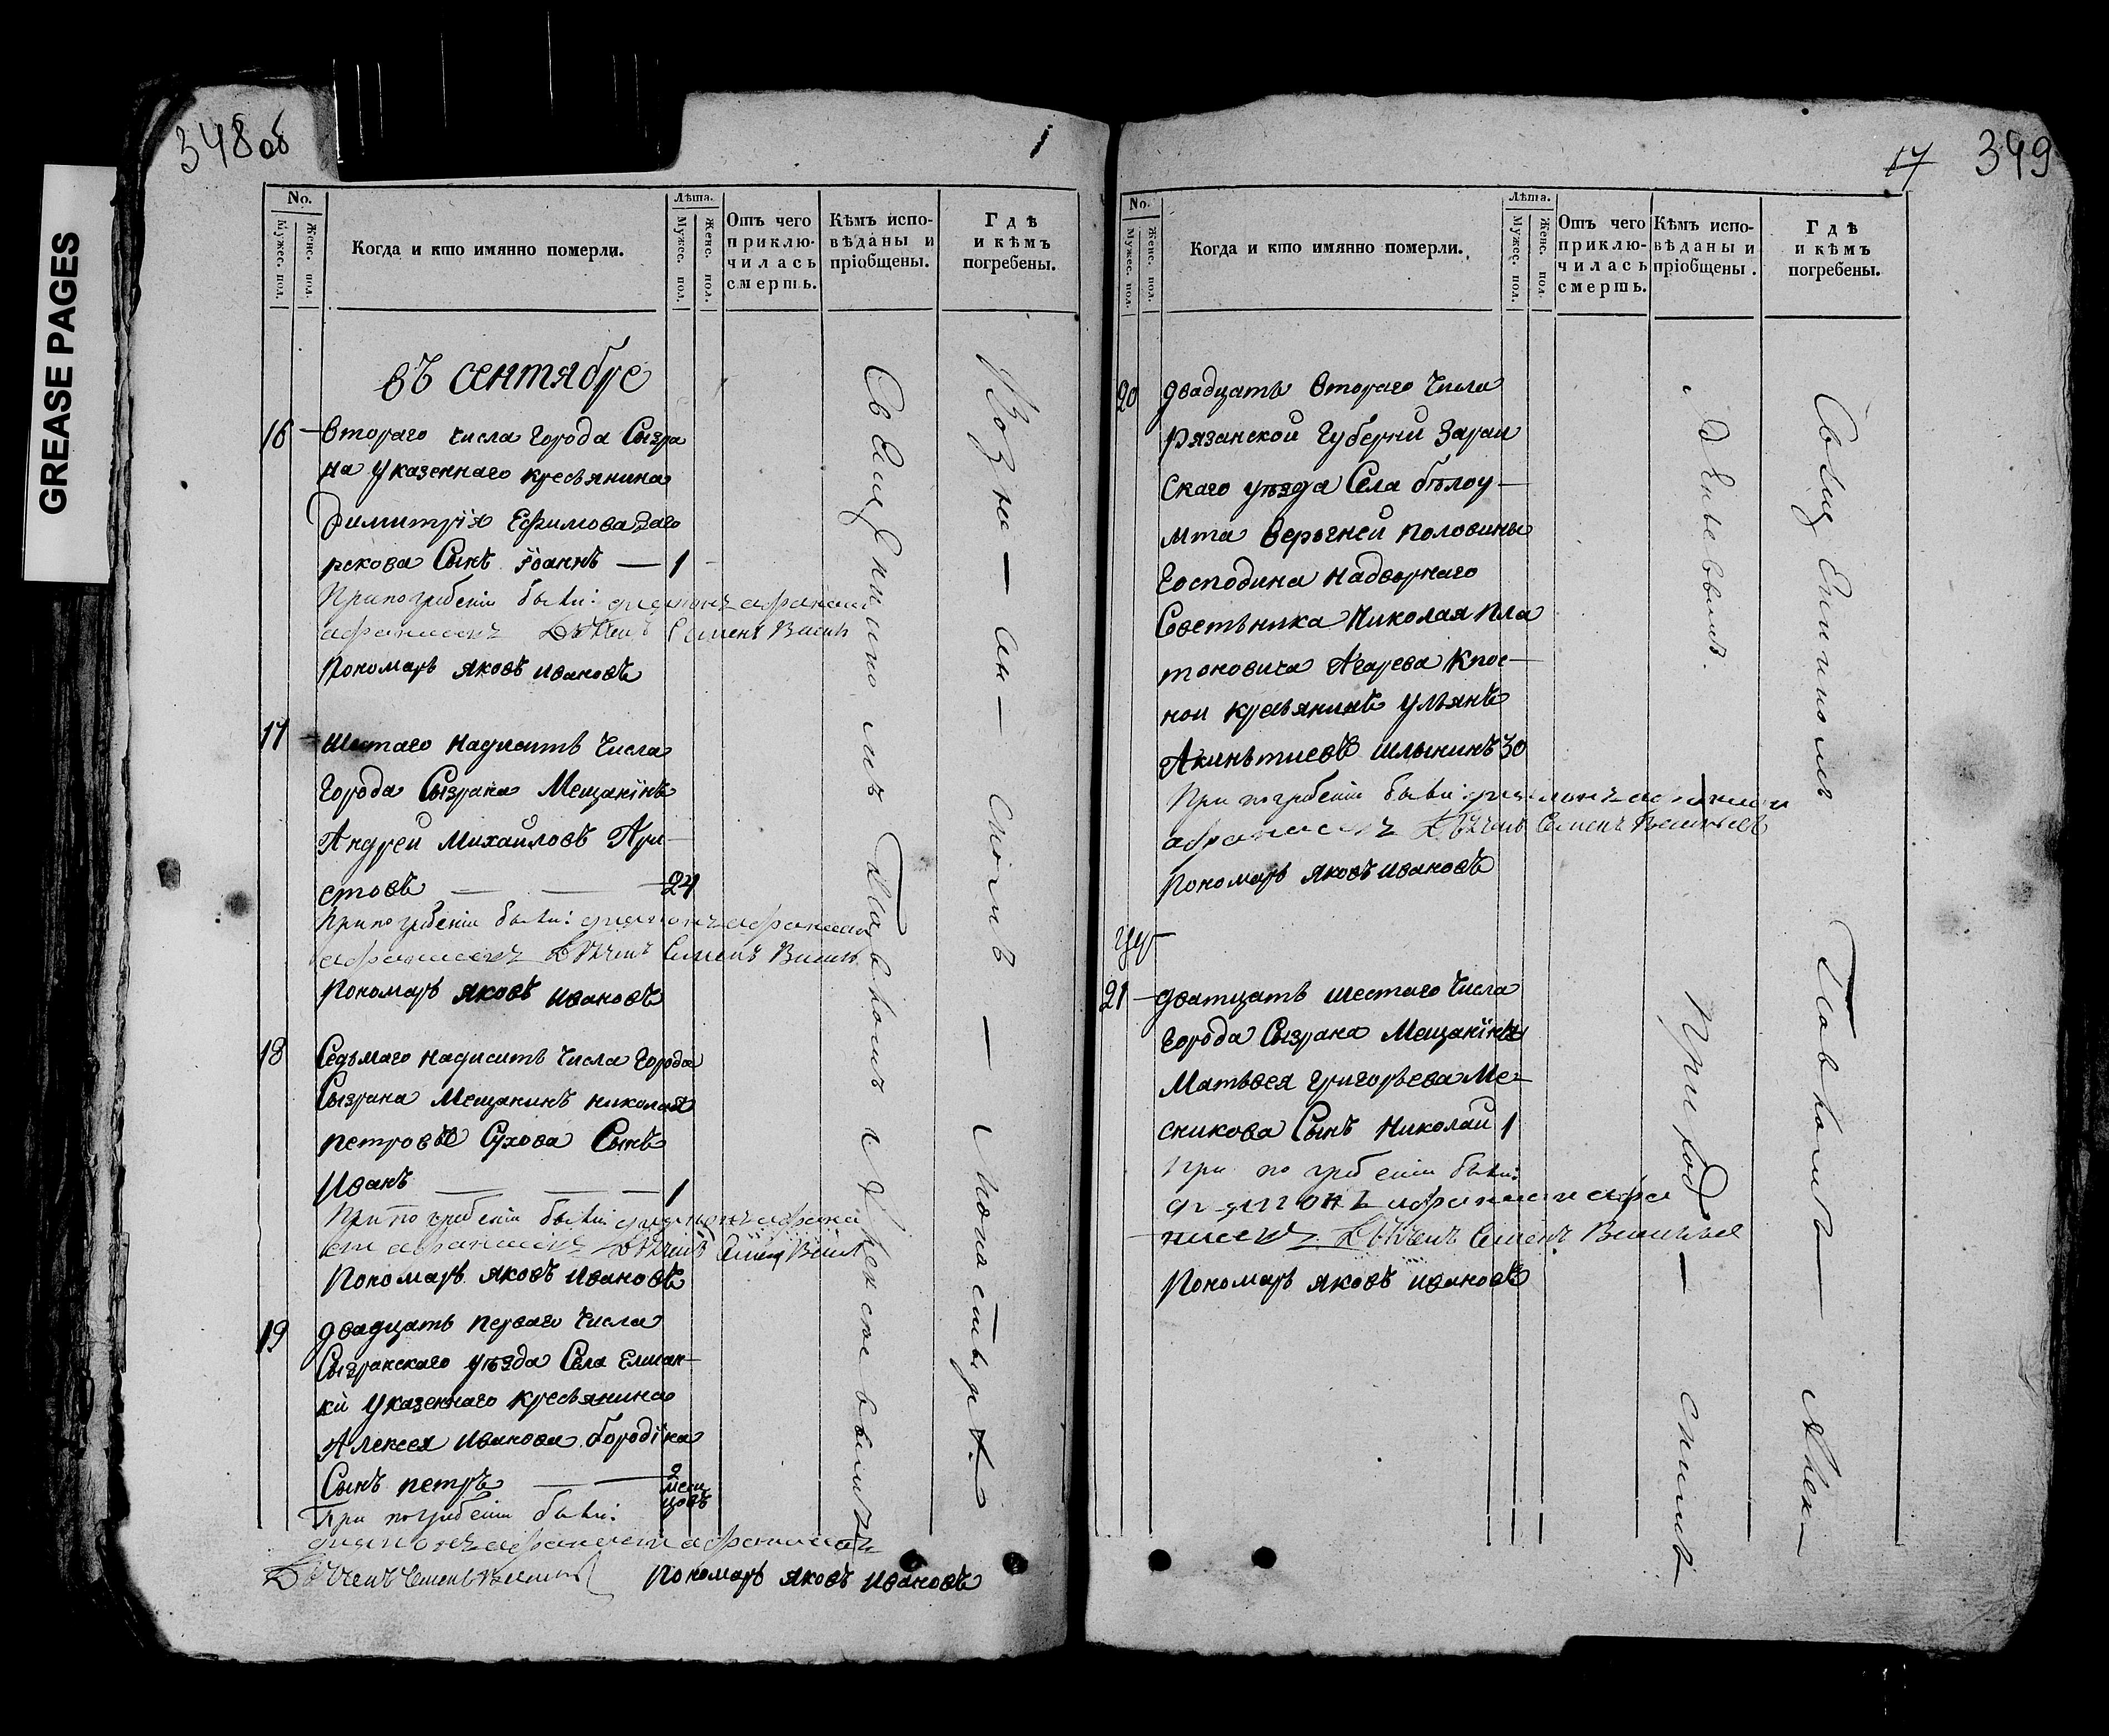 GREASE PAGES
348 об
1
No.
Мужес. пол.
Женс. пол.
Когда и кто имянно померли.
Лѣта.
Мужес. пол.
Женс. пол.
Отъ чего приклю-чилась смерть.
Кѣмъ испо-вѣданы и пріобщены.
Гдѣ и кѣмъ погребены.
въ сентябре
16 второго числа города Сызра
на указеннаго кресьянина
Димитрія Ефимова
рекова Сынъ Іоаннъ — 1
При погребеніи были: диаконъ афанаси
афанасевъ Дьячекъ Семенъ Васил
Пономарь яковъ ивановъ
17 шестаго надцеть числа
города Сызрана Мещанінъ
Андрей Михаиловъ Ари-
стовъ — — 24
При погребеніи были: диаконъ афанаси
афанасевъ Дьячекъ Семенъ Васил
Пономарь яковъ ивановъ
18 Седьмаго надцеть числа города
Сызрана Мещанинъ николая
петровъ Сухова Сынъ
Иванъ — — — 1
При погребеніи были диаконъ афана
си афанасевъ Дьячекъ Семен Васил
Пономарь яковъ ивановъ
19 двадцать перваго числа
Сызранскаго уѣзда Села Елшан-
ки указеннаго кресьянина
Алексея иванова бородіна
Сынъ петръ — — 2
меся
цовъ
При погребеніи были:
диаконъ афанаси афанасевъ
Дьячекъ Семенъ Васильев Пономарь яковъ ивановъ
Священникомъ Павломъ Алексѣевымъ
Возне — сен — скомъ — монастырѣ
17 349
No.
Мужес. пол.
Женс. пол.
Когда и кто имянно померли.
Лѣта.
Мужес. пол.
Женс. пол.
Отъ чего приклю-чилась смерть.
Кѣмъ испо-вѣданы и пріобщены.
Гдѣ и кѣмъ погребены.
20 двадцать втораго числа
рязанской губерни Зараи
скаго уѣзда Села бѣлоу-
мта верьхней половины
господина надворнаго
Советьника Николая Пла
тоновича Агарева Крос-
ной кресьянинъ ульянъ
Акиньтиевъ шлыкинъ 30
При погребеніи были: диаконъ афанаси
афанасевъ Дьячекъ Семенъ Васильевъ
Пономарь яковъ ивановъ
21 — дватцать шестаго числа
города Сызрана Мещаніна
Матьвея григорьева Ме-
сникова Сынъ николаи 1
При по гребеніи были:
диаконъ афанаси афа
насевъ Дьячекъ Семенъ Васильев
Пономарь яковъ ивановъ
Приход — скимъ
Священникомъ Павломъ — Алек—